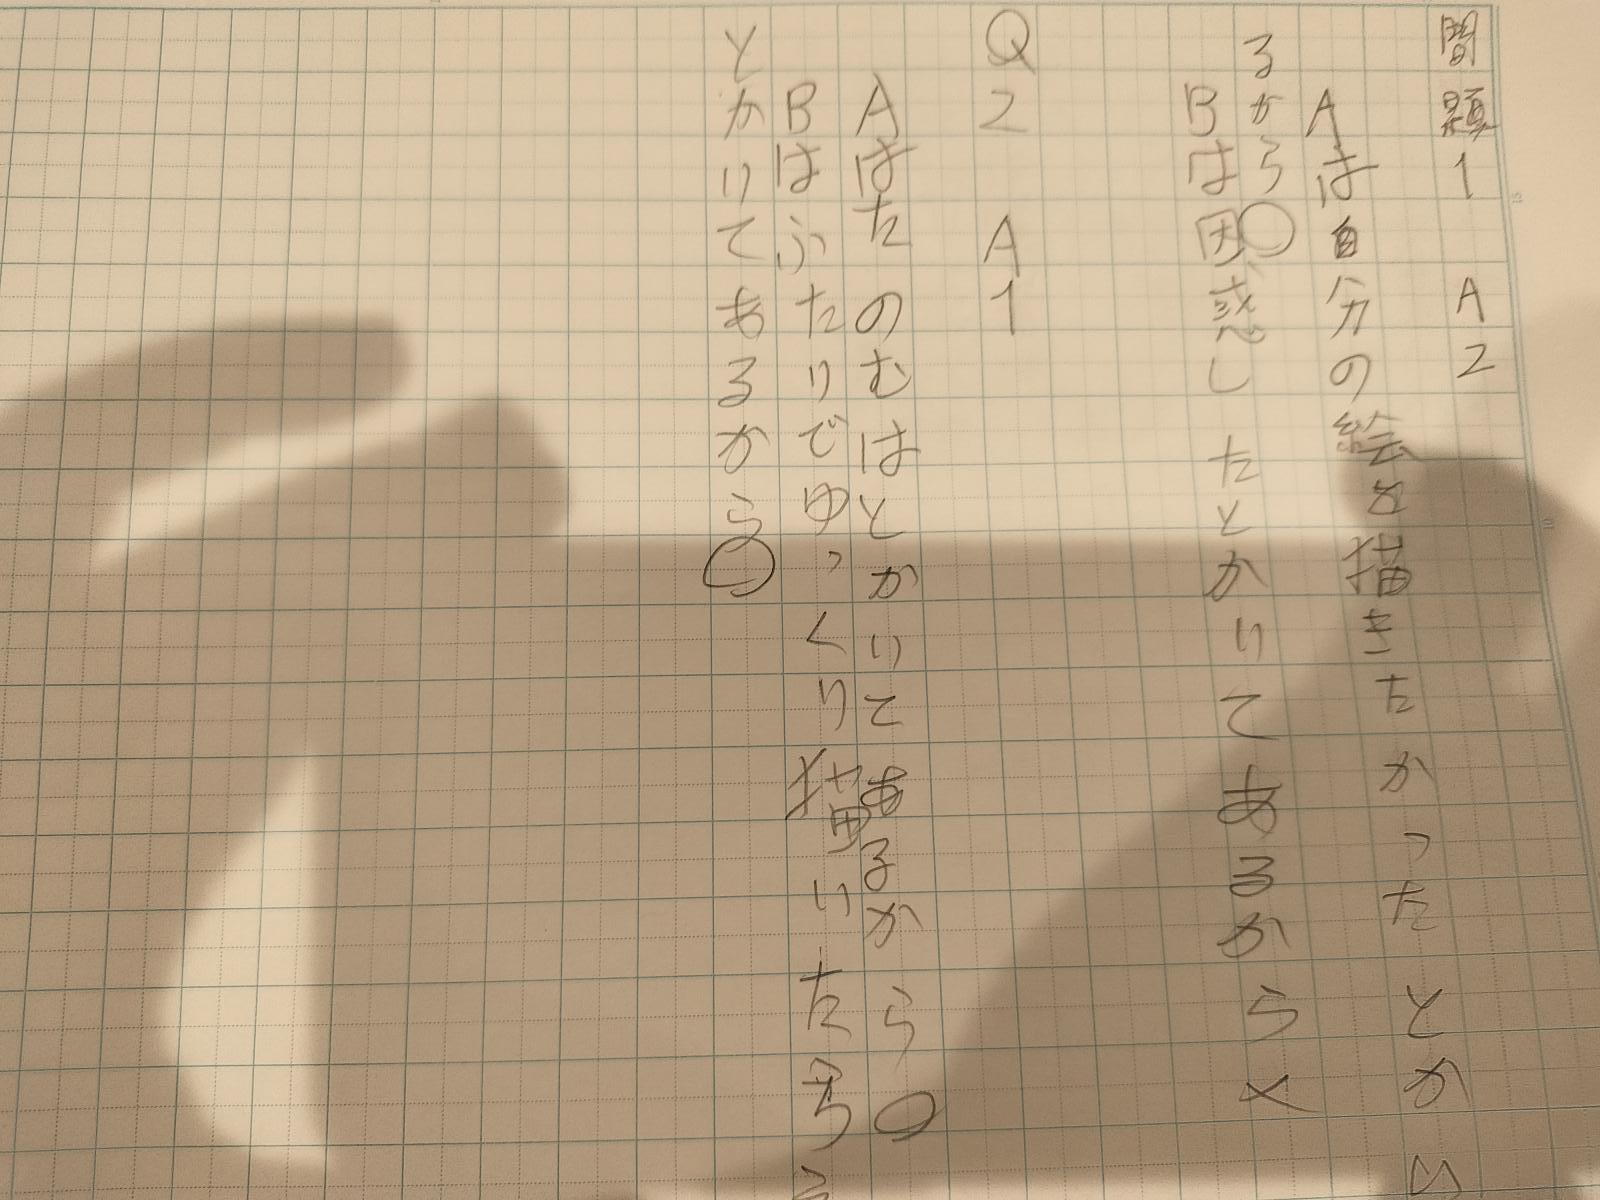 問題1 A2
Aは自分の絵を描きたかったとかい
るから○
Bは困惑したとかいてあるから×
Q2 A1
Aはたのむはとかいてあるから○
Bはふたりでゆっくり描いたろう
とかいてあるから○